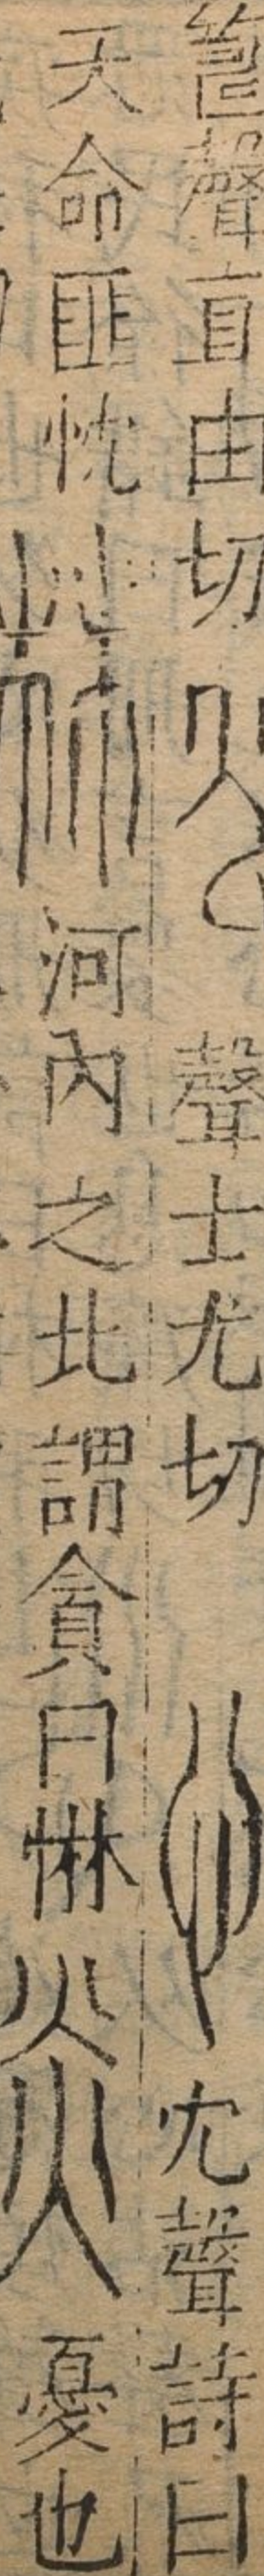 聲直由切 聲士尤切 冘聲詩曰
天命匪忱 河內之北謂貪曰惏 憂也